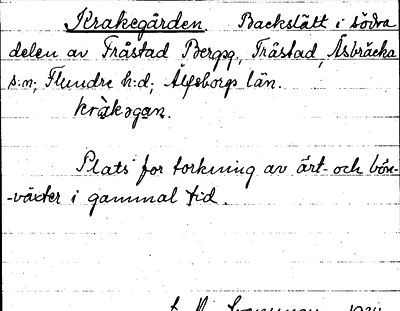 Krakegården Backslätt i södra
delen av Fråstad Bergsg, Fråstad, Åsbräcka
s:n; Flundre h:d; Älfsborgs län.
kràkəgan.
Plats for torkning av ärt- och bön-
-växter i gammal tid.